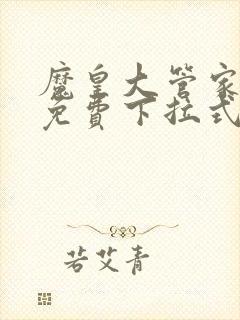 魔皇大管家
免費下拉式
若艾青